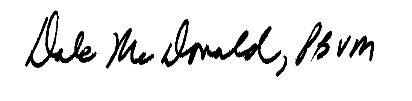 Dale McDonald, PBVM